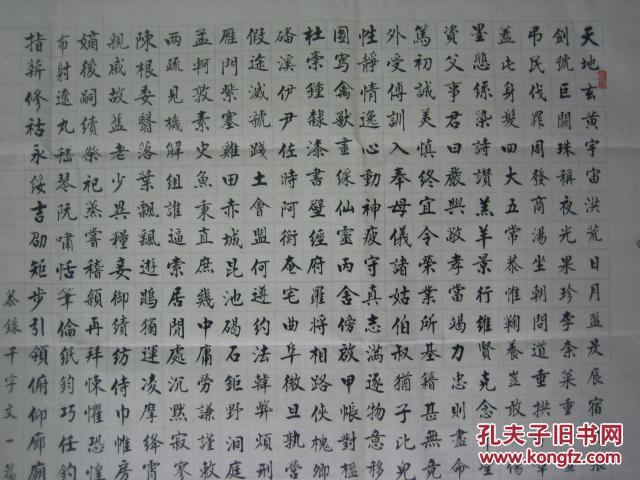 天地玄黄宇宙洪荒日月盈昃辰宿
劍號巨闕珠稱夜光果珍李柰菜重
弔民伐罪周發商湯坐朝問道垂拱
蓋此身髮四大五常恭惟鞠養豈敢傷
墨悲絲染詩讚羔羊景行維賢克念聖
資父事君曰嚴與敬孝當竭力忠則盡命
篤初誠美慎終宜令榮業所基籍甚無竟
外受傅訓入奉母儀諸姑伯叔猶子比兒
性靜情逸心動神疲守真志滿逐物意移
圖寫禽獸畫綵仙靈丙舍傍啟甲帳對楹
杜稾鍾隸漆書壁經府羅將相路俠槐卿
磻溪伊尹佐時阿衡奄宅曲阜微旦孰營
假途滅虢踐土會盟何遵約法韓弊煩刑
雁門紫塞雞田赤城昆池碣石鉅野洞庭
孟軻敦素史魚秉直庶幾中庸勞謙謹敕
兩疏見機解組誰逼索居閒處沉默寂寥
陳根委翳落葉飄颻遊鵾獨運凌摩絳霄
親戚故舊老少異糧妾御績紡侍巾帷房
嫡後嗣續祭祀蒸嘗稽顙再拜悚懼恐惶
布射遼丸嵇琴阮嘯恬筆倫紙鈞巧任釣
指薪修祜永綏吉劭矩步引領俯仰廊廟
恭錄千字文一篇
孔夫子旧书网